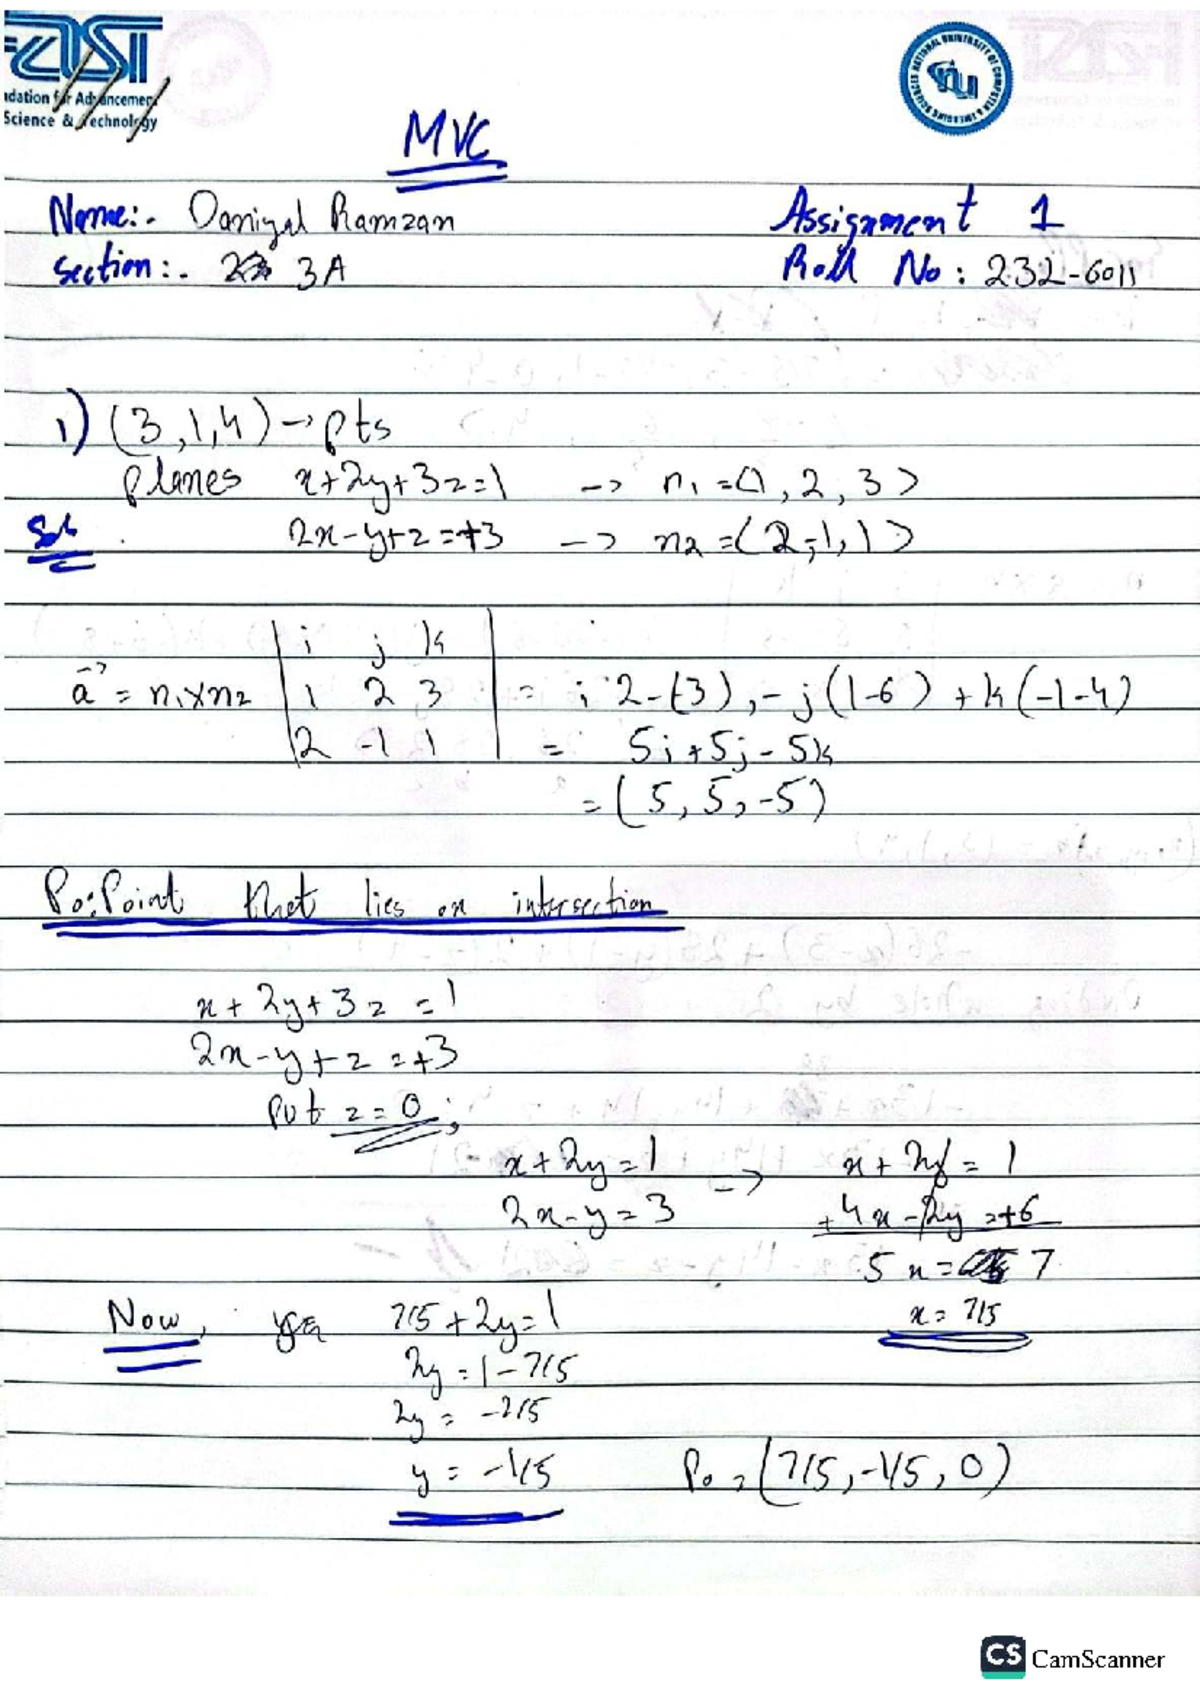 FAST
dation for Advancement
Science & Technology
NATIONAL UNIVERSITY OF COMPUTER & EMERGING SCIENCES
nu
MVC
Name:- Daniyal Ramzan
Assignment 1
Section:- 3A
Roll No: 232-6011
1) (3,1,4) → pts
planes x+2y+3z=1 → n1 = <1, 2, 3>
Sol 2x-y+z=+3 → n2 = <2,-1,1>
i j k
a→ = n1×n2 1 2 3 = i 2-(-3), -j(1-6) + k(-1-4)
2 -1 1 = 5i+5j-5k
= (5, 5, -5)
Po: Point that lies on intersection
x+2y+3z = 1
2x-y+z = +3
Put z=0;
x+2y=1 → x+2y = 1
2x-y=3 +4x-2y=+6
5x = 7
x = 7/5
Now, 7/5+2y=1
2y = 1-7/5
2y = -2/5
y = -1/5 Po = (7/5, -1/5, 0)
CS CamScanner